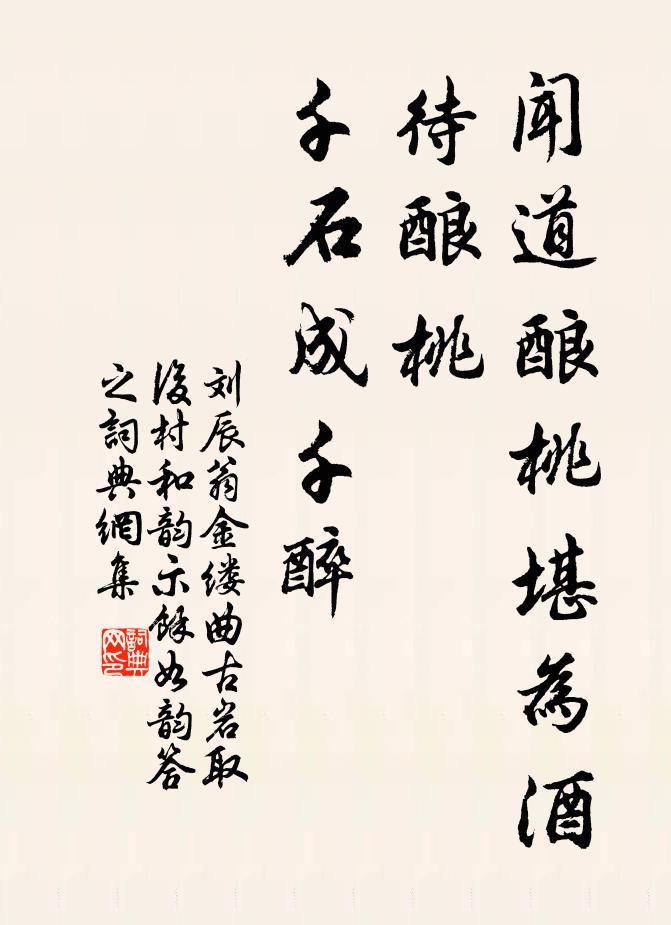 闻道酿桃堪為酒
待酿桃
千石成千醉
刘辰翁金缕曲古岩取
後村和韵示馀如韵答
之詞典網集
詞典
网印